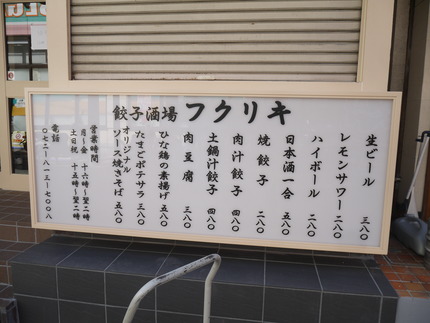 餃子酒場 フクリキ
生ビール 三八〇
レモンサワー 二八〇
ハイボール 二八〇
日本酒一合 五八〇
焼餃子 二八〇
肉汁餃子 四八〇
土鍋汁餃子 四八〇
肉豆腐 三八〇
ひな鶏の素揚げ 五八〇
たまごポテサラ 三八〇
オリジナル
ソース焼きそば 五八〇
営業時間
月〜金 十六時〜翌二時
土日祝 十五時〜翌二時
電話
〇七二-八一三-七〇〇八